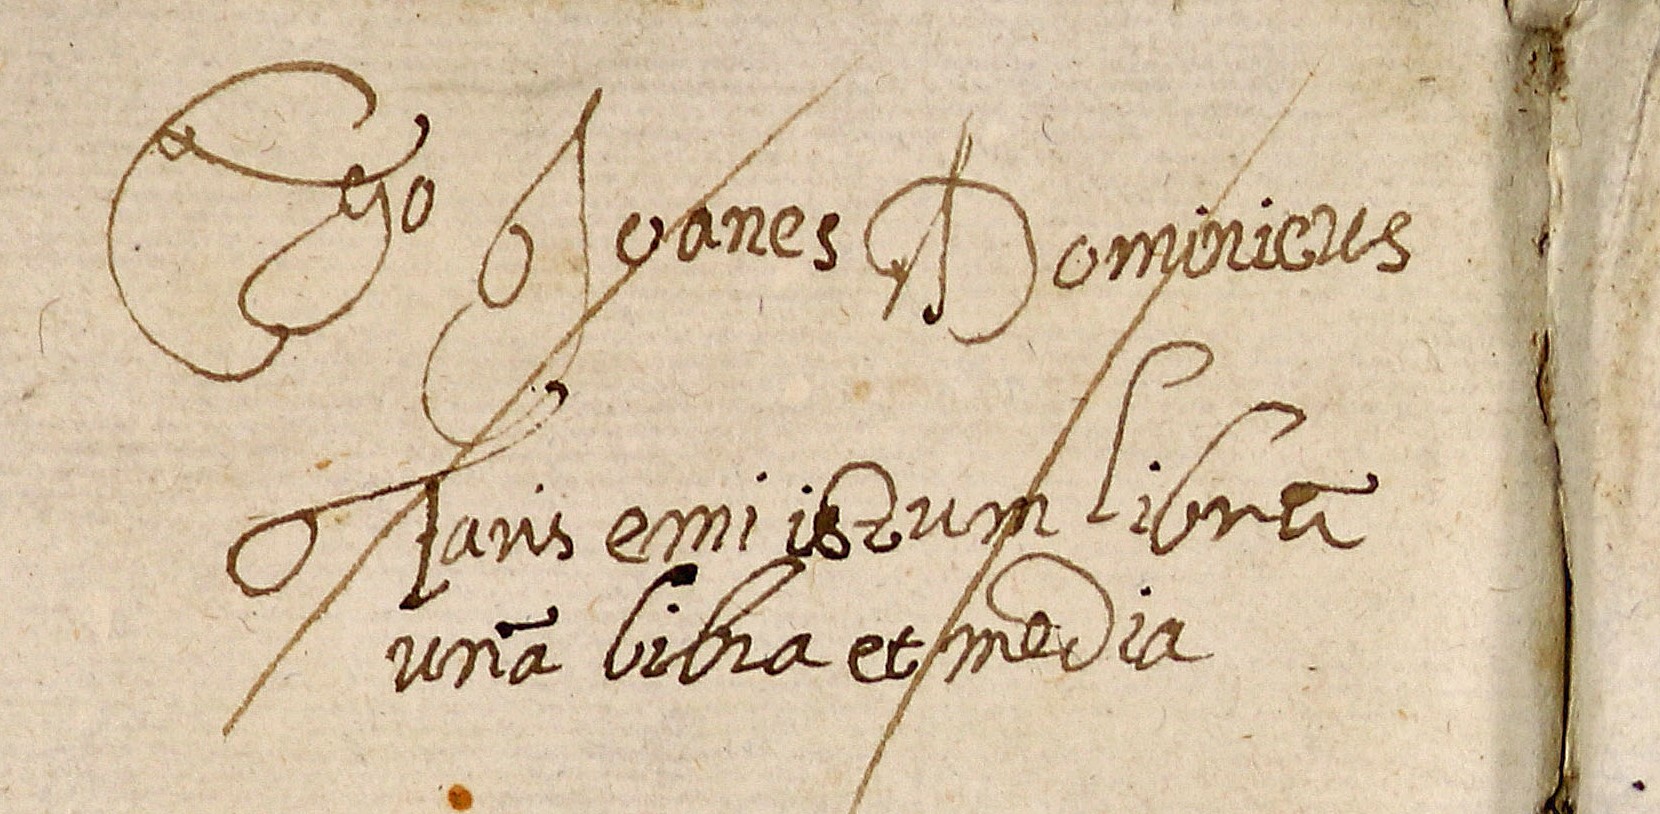 Ego Joanes Dominicus
Paris emi istum librũ
unã libra et media